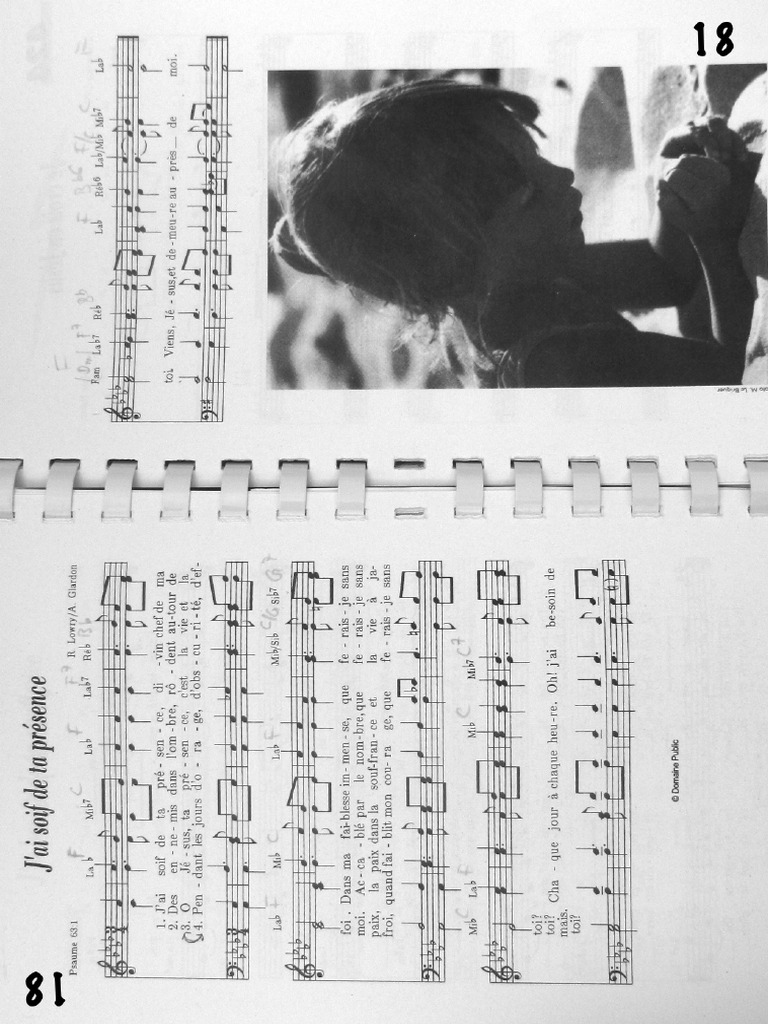 18
J'ai soif de ta présence
Psaume 63:1
R. Lowry/A. Glardon
Lab Mib7 Lab Lab7 Réb
1. J'ai soif de ta pré - sen - ce, di - vin chef de ma
2. Des en - ne - mis dans l'om - bre, rô - dent au - tour de
3. O Jé - sus, ta pré - sen - ce, c'est la vie et la
4. Pen - dant les jours d'o - ra - ge, d'obs - cu - ri - té, d'ef-
Lab Mib Lab Mib/Sib Sib7
foi. Dans ma fai - blesse im - men - se, que fe - rais - je sans
moi. Ac - ca - blé par le nom - bre, que fe - rais - je sans
paix, la paix dans la souf - fran - ce et la vie à ja-
froi, quand fai - blit mon cou - ra - ge, que fe - rais - je sans
Mib Lab Mib Mib7
toi? Cha - que jour à chaque heu - re. Oh! j'ai be - soin de
toi?
mais.
toi?
© Domaine Public
18
Fam Lab7 Réb Lab Réb6 Lab/Mib Mib7 Lab
toi. Viens, Jé - sus, et de - meu - re au - près de moi.